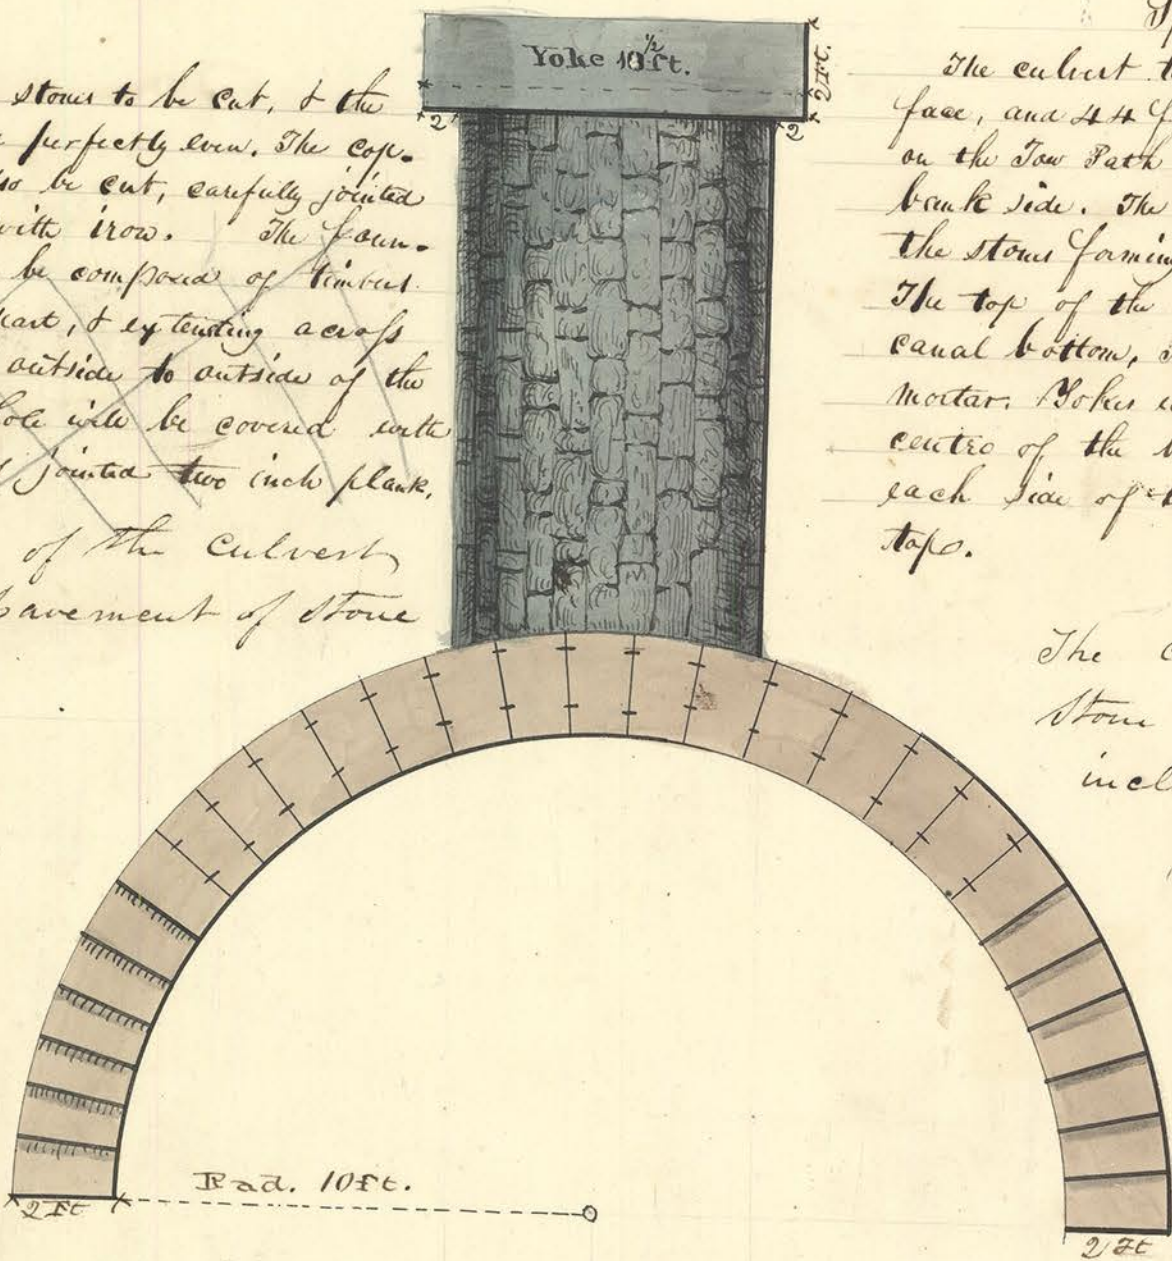 Yoke 10 1/2 ft.
2 Ft.
2
2
stones to be cut, & the
perfectly even. The cop-
so be cut, carefully jointed
with iron. The foun-
be composed of timbers
eart, & extending across
outside to outside of the
ole will be covered with
jointed two inch plank.
of the Culvert
pavement of stone
The culvert t
face, and 44 f
on the Tow Path
bank side. The
the stones forming
The top of the
canal bottom,
mortar. Yokes
centre of the
each side of
top.
The
Stone
incl
Rad. 10 ft.
2 Ft
2 Ft